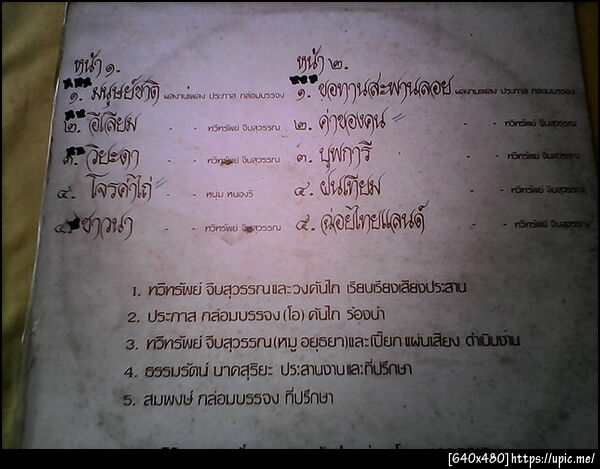 หน้า ๑.
๑. มนุษย์ชาติ ผลงานเพลง ประภาส กล่อมบรรจง
๒. อีเลียม - - ทวีทรัพย์ จีบสุวรรณ
๓. วิยะดา - ทวีทรัพย์ จีบสุวรรณ
๔. โจรค้าไถ่ - - หนุ่ม หนองวี
๕. ชาวนา - - ทวีทรัพย์ จีบสุวรรณ
หน้า ๒.
๑. ขอทานสะพานลอย ผลงานเพลง ประภาส กล่อมบรรจง
๒. ค่าของคน - ทวีทรัพย์ จีบสุวรรณ
๓. บุพการี - ทวีทรัพย์ จีบสุวรรณ
๔. ฝนเทียม - - ทวีทรัพย์ จีบสุวรรณ
๕. ฉอยไทยแลนด์ - ทวีทรัพย์ จีบสุวรรณ
1. ทวีทรัพย์ จีบสุวรรณและวงคันไถ เรียบเรียงเสียงประสาน
2. ประภาส กล่อมบรรจง (โอ) คันไถ ร้องนำ
3. ทวีทรัพย์ จีบสุวรรณ(หมู อยุธยา)และเปี๊ยก แผ่นเสียง ดำเนินงาน
4. ธรรมรัตน์ นาคสุริยะ ประสานงานและที่ปรึกษา
5. สมพงษ์ กล่อมบรรจง ที่ปรึกษา
[640x480]https://upic.me/